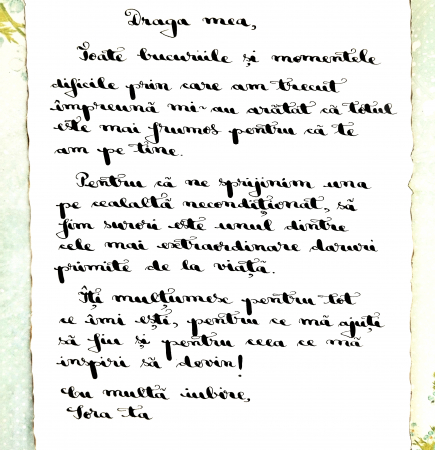 Draga mea,
Toate bucuriile și momentele
dificile prin care am trecut
împreună mi-au arătat că totul
este mai frumos pentru că te
am pe tine.
Pentru că ne sprijinim una
pe cealaltă necondiționat, să
fim surori este unul dintre
cele mai extraordinare daruri
primite de la viață.
Îți mulțumesc pentru tot
ce îmi ești, pentru ce mă ajuți
să fiu și pentru ceea ce mă
inspiri să devin!
Cu multă iubire,
Sora ta